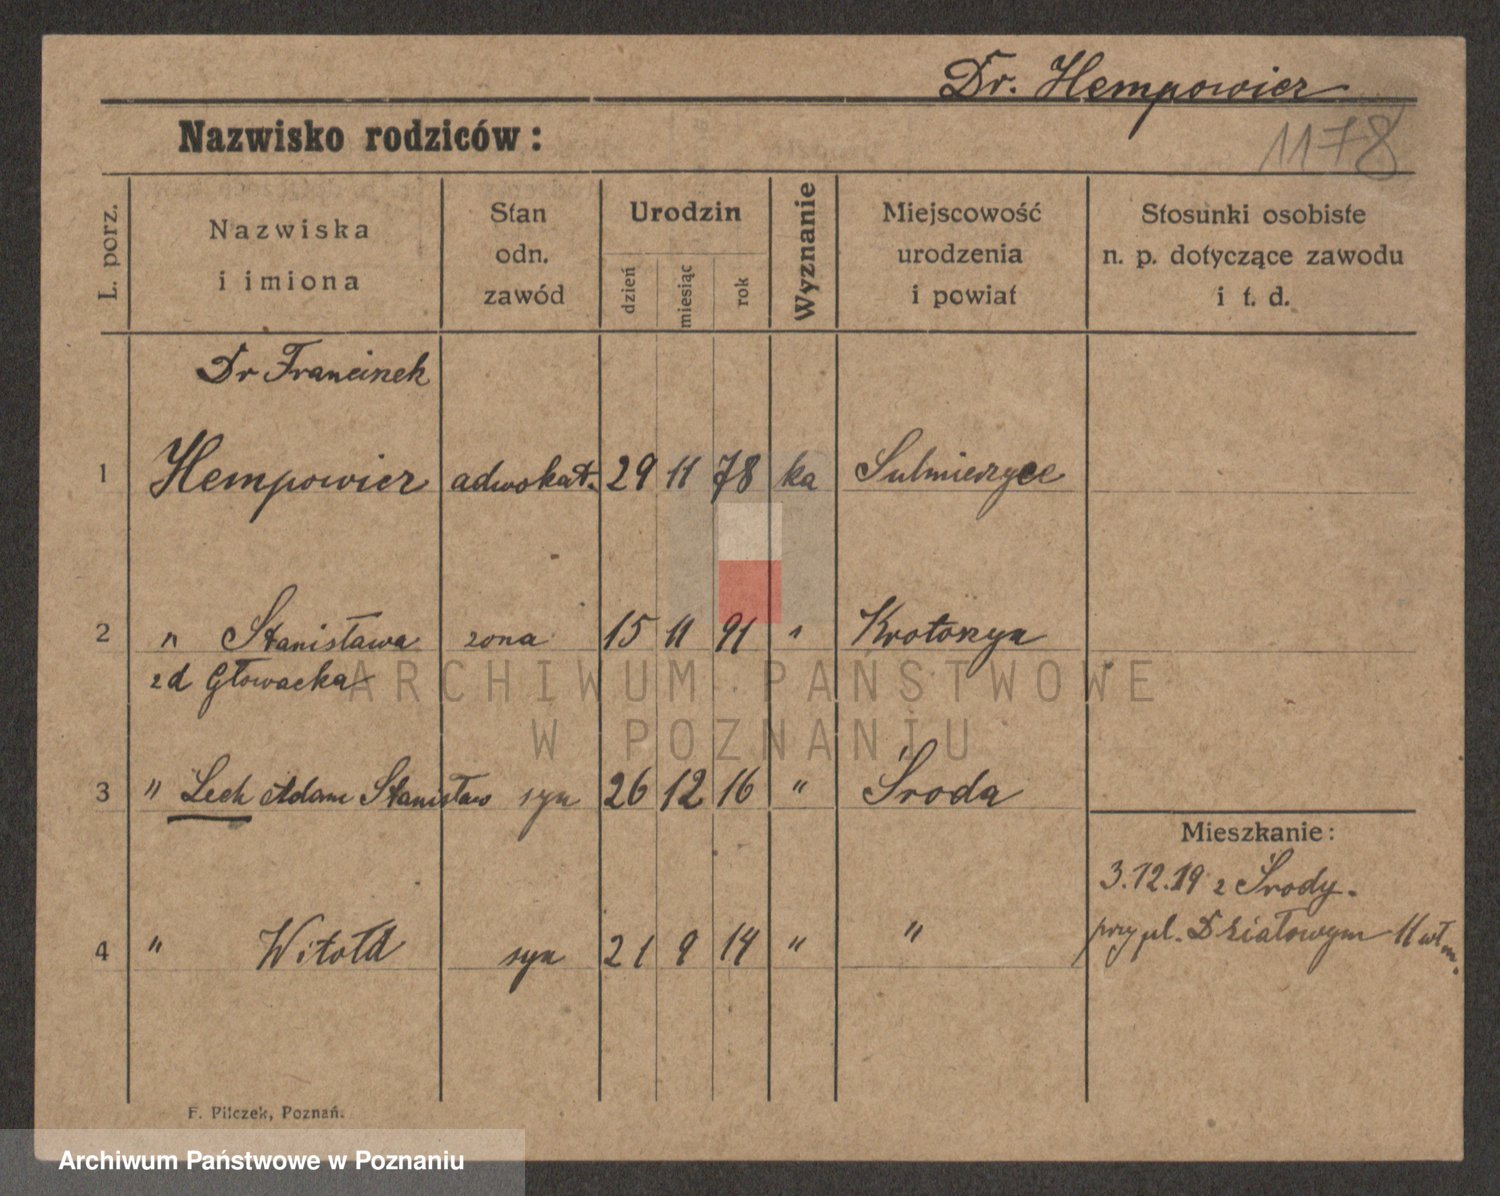 Dr. Hempowicz
Nazwisko rodziców:
1178
L. porz.
Nazwiska
i imiona
Stan
odn.
zawód
Urodzin
dzień
miesiąc
rok
Wyznanie
Miejscowość
urodzenia
i powiat
Stosunki osobiste
n. p. dotyczące zawodu
i t. d.
Dr Franciszek
1 Hempowicz adwokat. 29 11 78 ka Sulmierzyce
2 " Stanisława żona 15 11 91 " Krotoszyn
zd Głowacka
3 " Lech Adam Stanisław syn 26 12 16 " Środa
Mieszkanie:
3.12.19 z Środy.
przy pl. Działowym 11 wł m.
4 " Witold syn 21 9 14 " "
F. Pilczek, Poznań.
ARCHIWUM PAŃSTWOWE
W POZNANIU
Archiwum Państwowe w Poznaniu